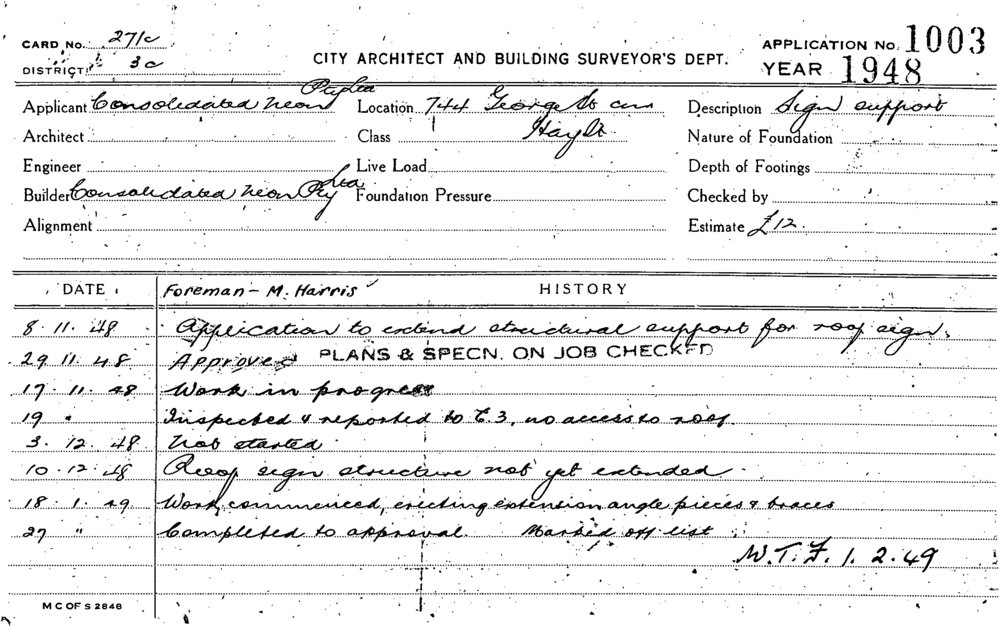 CARD No. 271c
DISTRICT 3c
CITY ARCHITECT AND BUILDING SURVEYOR'S DEPT.
APPLICATION No. 1003
YEAR 1948
Applicant Consolidated Neon Pty Ltd Location 744 George St cnr Hay St Description Sign support
Architect Class Nature of Foundation
Engineer Live Load Depth of Footings
Builder Consolidated Neon Pty Ltd Foundation Pressure Checked by
Alignment Estimate £12.
DATE Foreman - M. Harris HISTORY
8.11.48 Application to extend structural support for roof sign.
29.11.48 Approved PLANS & SPECN. ON JOB CHECKED
17.11.48 Work in progress
19 " Inspected & reported to E.3, no access to roof.
3.12.48 Not started
10.12.48 Roof sign structure not yet extended
18.1.49 Work commenced, erecting extension angle pieces & braces
27 " Completed to approval. Marked off list
W.T.F. 1.2.49
M C OF S 2848